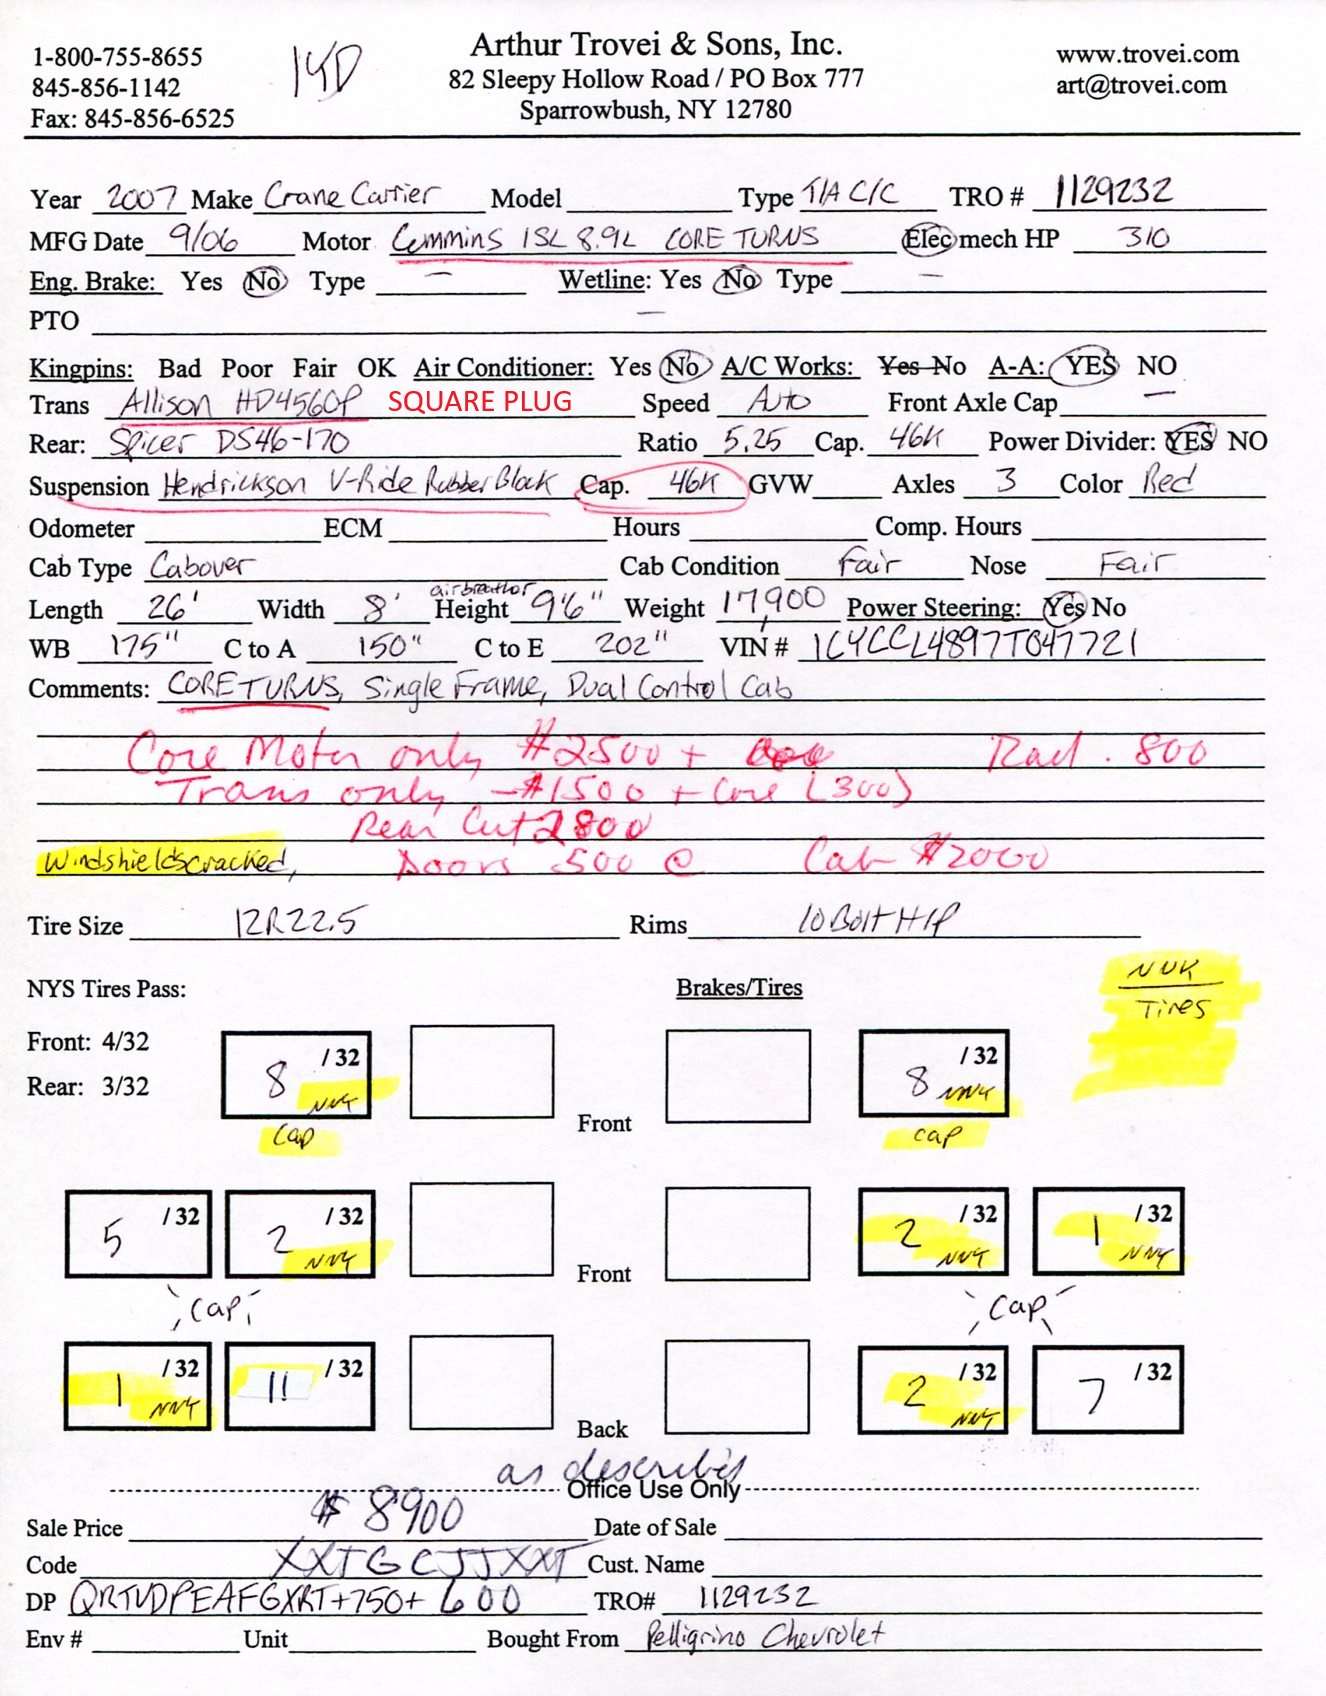 1-800-755-8655
845-856-1142
Fax: 845-856-6525
Arthur Trovei & Sons, Inc.
82 Sleepy Hollow Road / PO Box 777
Sparrowbush, NY 12780
www.trovei.com
art@trovei.com
Year 2007 Make Crane Carrier Model Type T/A C/C TRO # 1129232
MFG Date 9/06 Motor Cummins ISL 8.9L CORE TURNS Elec mech HP 310
Eng. Brake: Yes No Type — Wetline: Yes No Type —
PTO —
Kingpins: Bad Poor Fair OK Air Conditioner: Yes No A/C Works: Yes No A-A: YES NO
Trans Allison HD4560P SQUARE PLUG Speed Auto Front Axle Cap —
Rear: Spicer DS46-170 Ratio 5.25 Cap. 46K Power Divider: YES NO
Suspension Hendrickson V-Ride Rubber Block Cap. 46K GVW Axles 3 Color Red
Odometer ECM Hours Comp. Hours
Cab Type Cabover Cab Condition Fair Nose Fair
Length 26' Width 8' airbreather Height 9'6" Weight 17,900 Power Steering: Yes No
WB 175" C to A 150" C to E 202" VIN # 1CYCCL4897T047721
Comments: CORE TURNS, Single Frame, Dual Control Cab
Core Motor only #2500 + Rad. 800
Trans only - $1500 + Core (300)
Rear Cut 2800
Windshields cracked, Doors 500 @ Cab #2000
Tire Size 12R22.5 Rims 10 Bolt H/P
NYS Tires Pass: Brakes/Tires
Front: 4/32
Rear: 3/32
NNY
Tires
8 /32 NNY Front 8 /32 NNY
Cap cap
5 /32 2 /32 NNY Front 2 /32 NNY 1 /32 NNY
Cap Cap
1 /32 NNY 11 /32 Back 2 /32 NNY 7 /32
as described
Office Use Only
Sale Price $8900 Date of Sale
Code XXTGCJJXXT Cust. Name
DP QRTVDPEAFGXRT+750+600 TRO# 1129232
Env # Unit Bought From Pelligrino Chevrolet